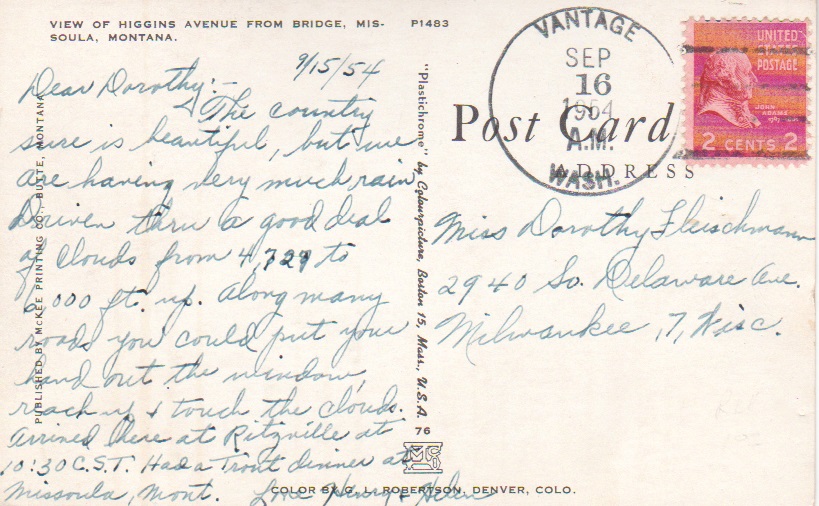 VIEW OF HIGGINS AVENUE FROM BRIDGE, MIS-
SOULA, MONTANA.
P1483
9/15/54
Dear Dorothy:-
The country
sure is beautiful, but we
are having very much rain
Driven thru a good deal
of clouds from 4,729 to
000 ft. up. Along many
roads you could put your
hand out the window,
reach up & touch the clouds.
Arrived here at Ritzville at
10:30 C.S.T. Had a Trout dinner at
Missoula, Mont. Love Henry & Helen
PUBLISHED BY McKEE PRINTING CO., BUTTE, MONTANA
"Plastichrome" by Colourpicture, Boston 15, Mass., U.S.A.
76
COLOR BY G. L. ROBERTSON, DENVER, COLO.
VANTAGE
SEP
16
1954
A.M.
WASH.
UNITED
STATES
POSTAGE
JOHN
ADAMS
2 CENTS 2
Post Card
ADDRESS
Miss Dorothy Fleischmann
2940 So. Delaware Ave.
Milwaukee, 7, Wisc.